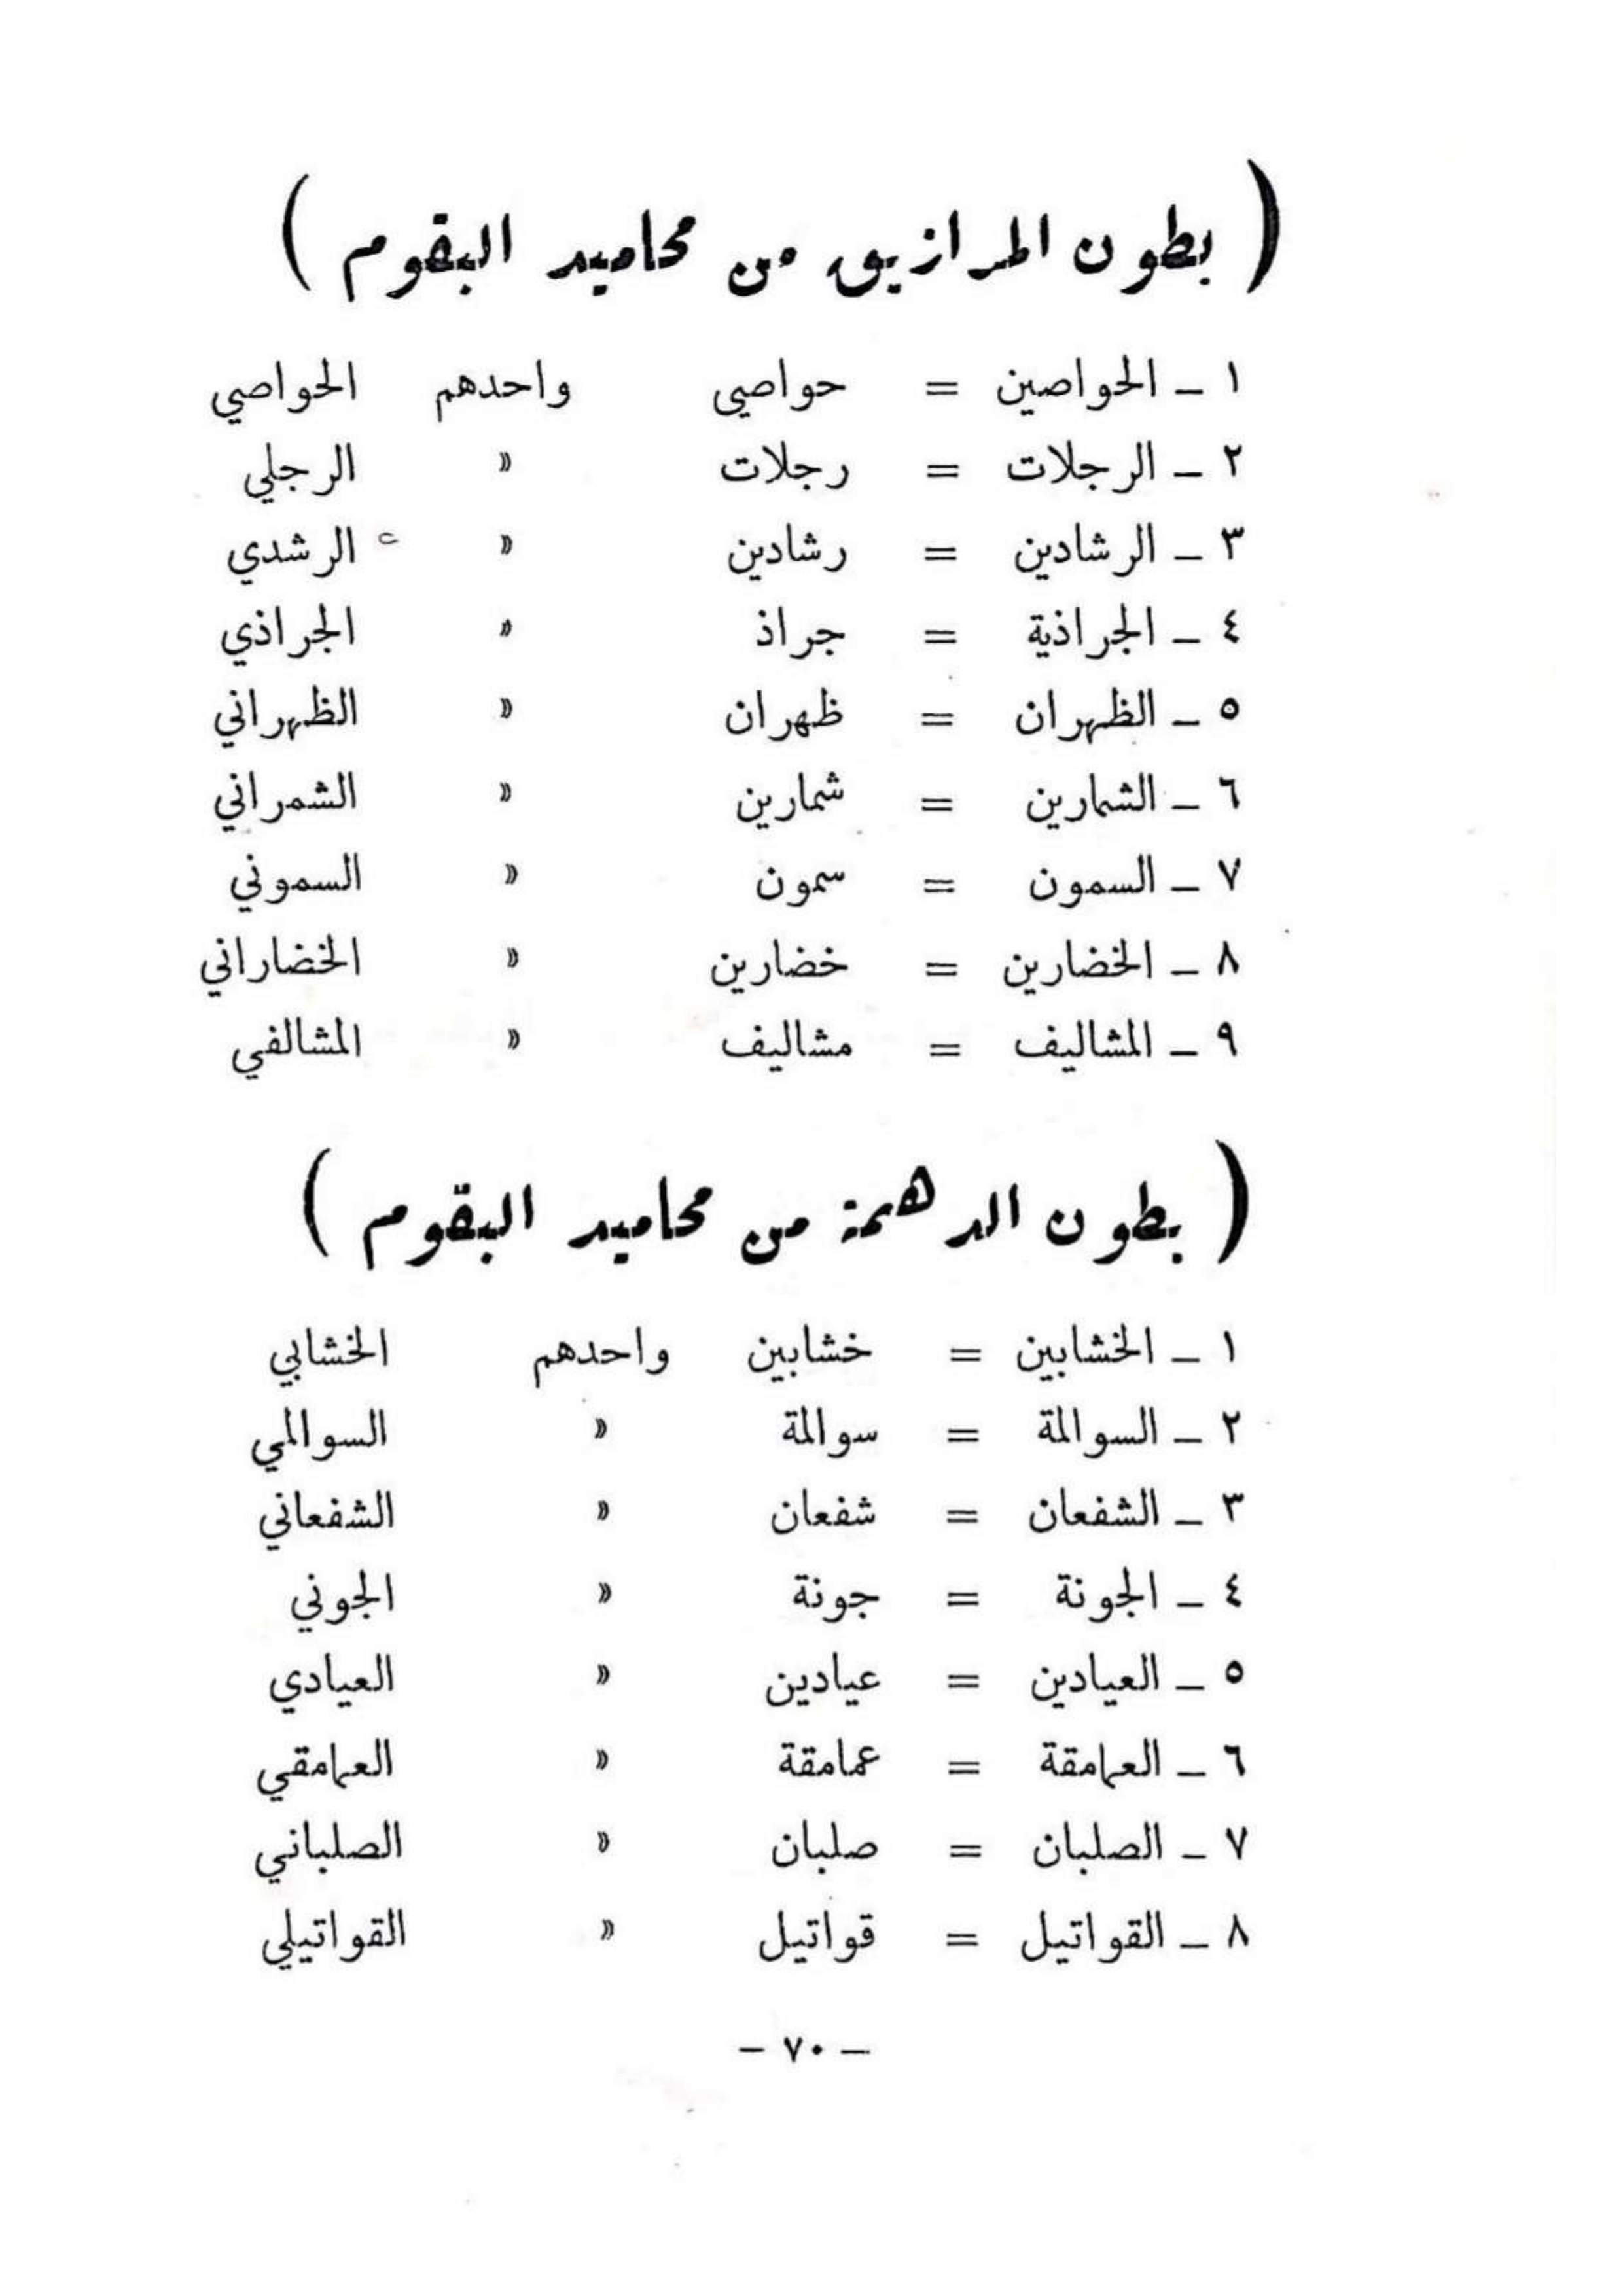 ( بطون المرازيق من محاميد البقوم )
١ – الحواصين = حواصي واحدهم الحواصي
٢ – الرجلات = رجلات » الرجلي
٣ – الرشادين = رشادين » الرشدي
٤ – الجراذية = جراذ » الجراذي
٥ – الظهران = ظهران » الظهراني
٦ – الشمارين = شمارين » الشمراني
٧ – السمون = سمون » السموني
٨ – الخضارين = خضارين » الخضاراني
٩ – المشاليف = مشاليف » المشالفي
( بطون الدهمة من محاميد البقوم )
١ – الخشابين = خشابين واحدهم الخشابي
٢ – السوالمة = سوالمة » السوالمي
٣ – الشفعان = شفعان » الشفعاني
٤ – الجونة = جونة » الجوني
٥ – العيادين = عيادين » العيادي
٦ – العمامقة = عمامقة » العمامقي
٧ – الصلبان = صلبان » الصلباني
٨ – القواتيل = قواتيل » القواتيلي
– ٧٠ –